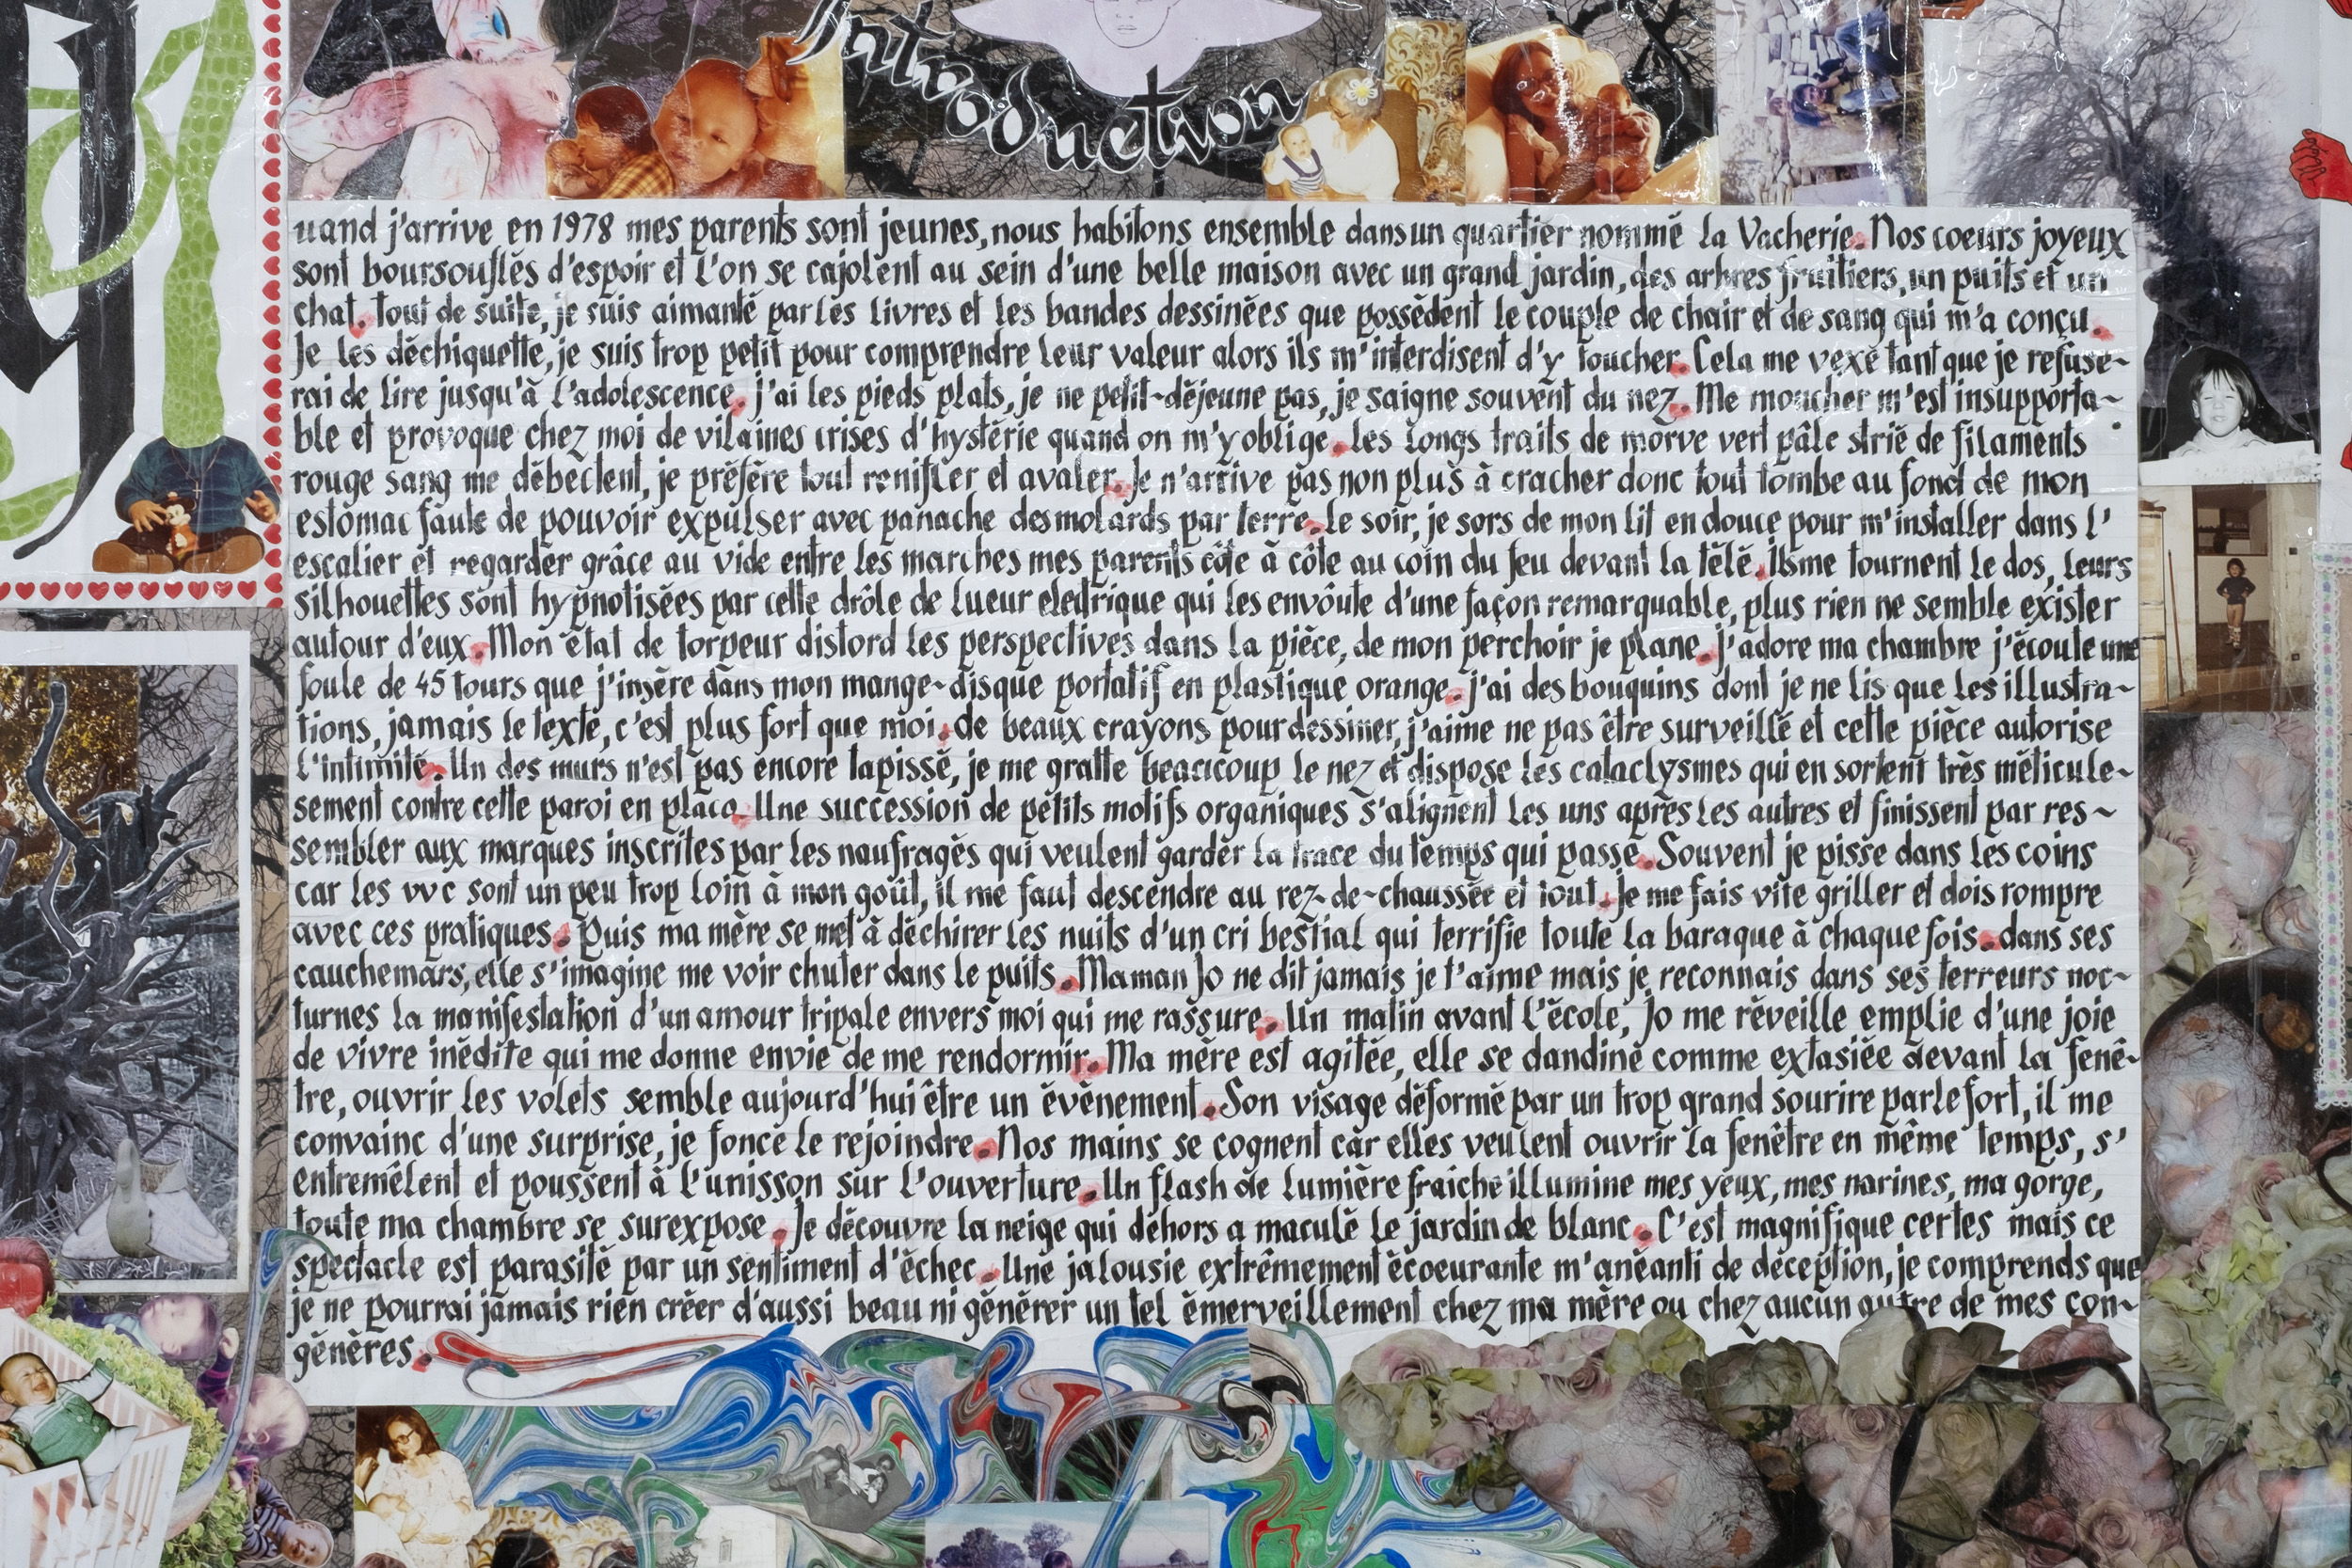 Introduction
uand j'arrive en 1978 mes parents sont jeunes, nous habitons ensemble dans un quartier nommé la Vacherie. Nos coeurs joyeux
sont boursouflés d'espoir et l'on se cajolent au sein d'une belle maison avec un grand jardin, des arbres fruitiers, un puits et un
chat. Tout de suite, je suis aimanté par les livres et les bandes dessinées que possèdent le couple de chair et de sang qui m'a conçu.
Je les déchiquette, je suis trop petit pour comprendre leur valeur alors ils m'interdisent d'y toucher. Cela me vexe tant que je refuse~
rai de lire jusqu'à l'adolescence. j'ai les pieds plats, je ne petit~déjeune pas, je saigne souvent du nez. Me moucher m'est insupporta~
ble et provoque chez moi de vilaines crises d'hystérie quand on m'y oblige. les longs traits de morve vert pâle strié de filaments
rouge sang me débectent, je préfère tout renifler et avaler. Je n'arrive pas non plus à cracher donc tout tombe au fond de mon
estomac faute de pouvoir expulser avec panache des molards par terre. Le soir, je sors de mon lit en douce pour m'installer dans l'
escalier et regarder grâce au vide entre les marches mes parents côte à côte au coin du feu devant la télé. Ils me tournent le dos, leurs
silhouettes sont hypnotisées par cette drôle de lueur electrique qui les envoûte d'une façon remarquable, plus rien ne semble exister
autour d'eux. Mon état de torpeur distord les perspectives dans la pièce, de mon perchoir je plane. J'adore ma chambre j'écoute une
foule de 45 tours que j'insère dans mon mange~disque portatif en plastique orange. j'ai des bouquins dont je ne lis que les illustra~
tions, jamais le texte, c'est plus fort que moi. de beaux crayons pour dessiner, j'aime ne pas être surveillé et cette pièce autorise
l'intimité. Un des murs n'est pas encore tapissé, je me gratte beaucoup le nez et dispose les cataclysmes qui en sortent très méticule~
sement contre cette paroi en placo. Une succession de petits motifs organiques s'alignent les uns après les autres et finissent par res~
sembler aux marques inscrites par les naufragés qui veulent garder la trace du temps qui passe. Souvent je pisse dans les coins
car les wc sont un peu trop loin à mon goût, il me faut descendre au rez~de~chaussée et tout. je me fais vite griller et dois rompre
avec ces pratiques. Puis ma mère se met à déchirer les nuits d'un cri bestial qui terrifie toute la baraque à chaque fois. dans ses
cauchemars, elle s'imagine me voir chuter dans le puits. Maman Jo ne dit jamais je t'aime mais je reconnais dans ses terreurs noc~
turnes la manifestation d'un amour tripale envers moi qui me rassure. Un matin avant l'école, Jo me réveille emplie d'une joie
de vivre inédite qui me donne envie de me rendormir. Ma mère est agitée, elle se dandine comme extasiée devant la fenê~
tre, ouvrir les volets semble aujourd'hui être un évènement. Son visage déformé par un trop grand sourire parle fort, il me
convainc d'une surprise, je fonce le rejoindre. Nos mains se cognent car elles veulent ouvrir la fenêtre en même temps, s'
entremêlent et poussent à l'unisson sur l'ouverture. Un flash de lumière fraîche illumine mes yeux, mes narines, ma gorge,
toute ma chambre se surexpose. Je découvre la neige qui dehors a maculé le jardin de blanc. C'est magnifique certes mais ce
spectacle est parasité par un sentiment d'échec. Une jalousie extrêmement écoeurante m'anéanti de déception, je comprends que
je ne pourrai jamais rien créer d'aussi beau ni générer un tel émerveillement chez ma mère ou chez aucun autre de mes con~
génères.